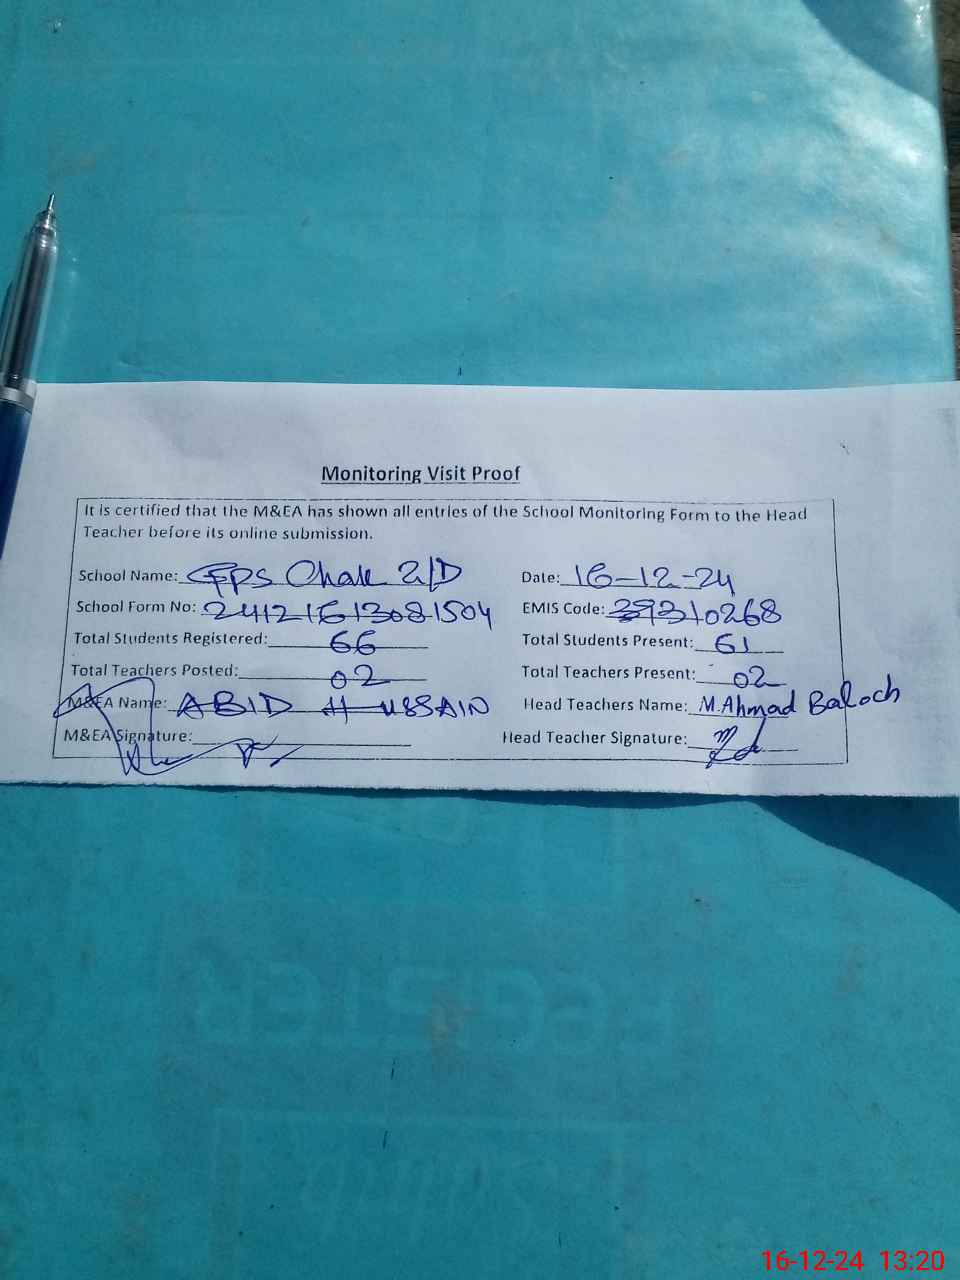 Monitoring Visit Proof
It is certified that the M&EA has shown all entries of the School Monitoring Form to the Head
Teacher before its online submission.
School Name: GPS Chak 2/D Date: 16-12-24
School Form No: 24121613081504 EMIS Code: 39310268
Total Students Registered: 66 Total Students Present: 61
Total Teachers Posted: 02 Total Teachers Present: 02
M&EA Name: ABID HUSSAIN Head Teachers Name: M. Ahmad Baloch
M&EA Signature: Head Teacher Signature:
16-12-24 13:20